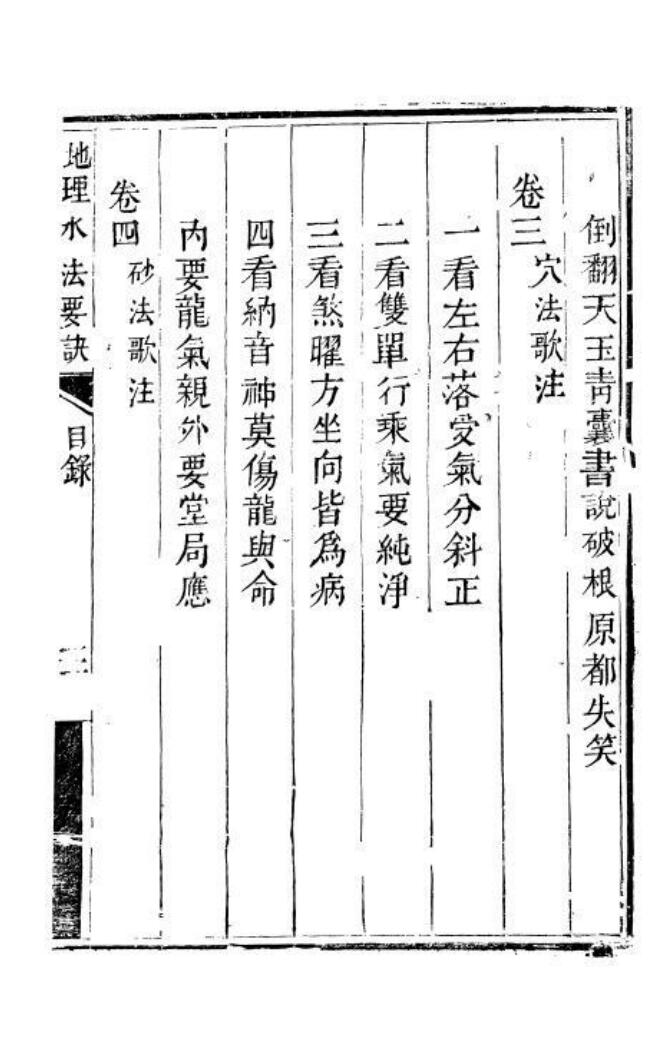 倒翻天玉青囊書說破根原都失笑
卷三
穴法歌注
一看左右落受氣分斜正
二看雙單行乘氣要純淨
三看煞曜方坐向皆爲病
四看納音神莫傷龍與命
內要龍氣親外要堂局應
卷四
砂法歌注
地理水法要訣
目錄
三